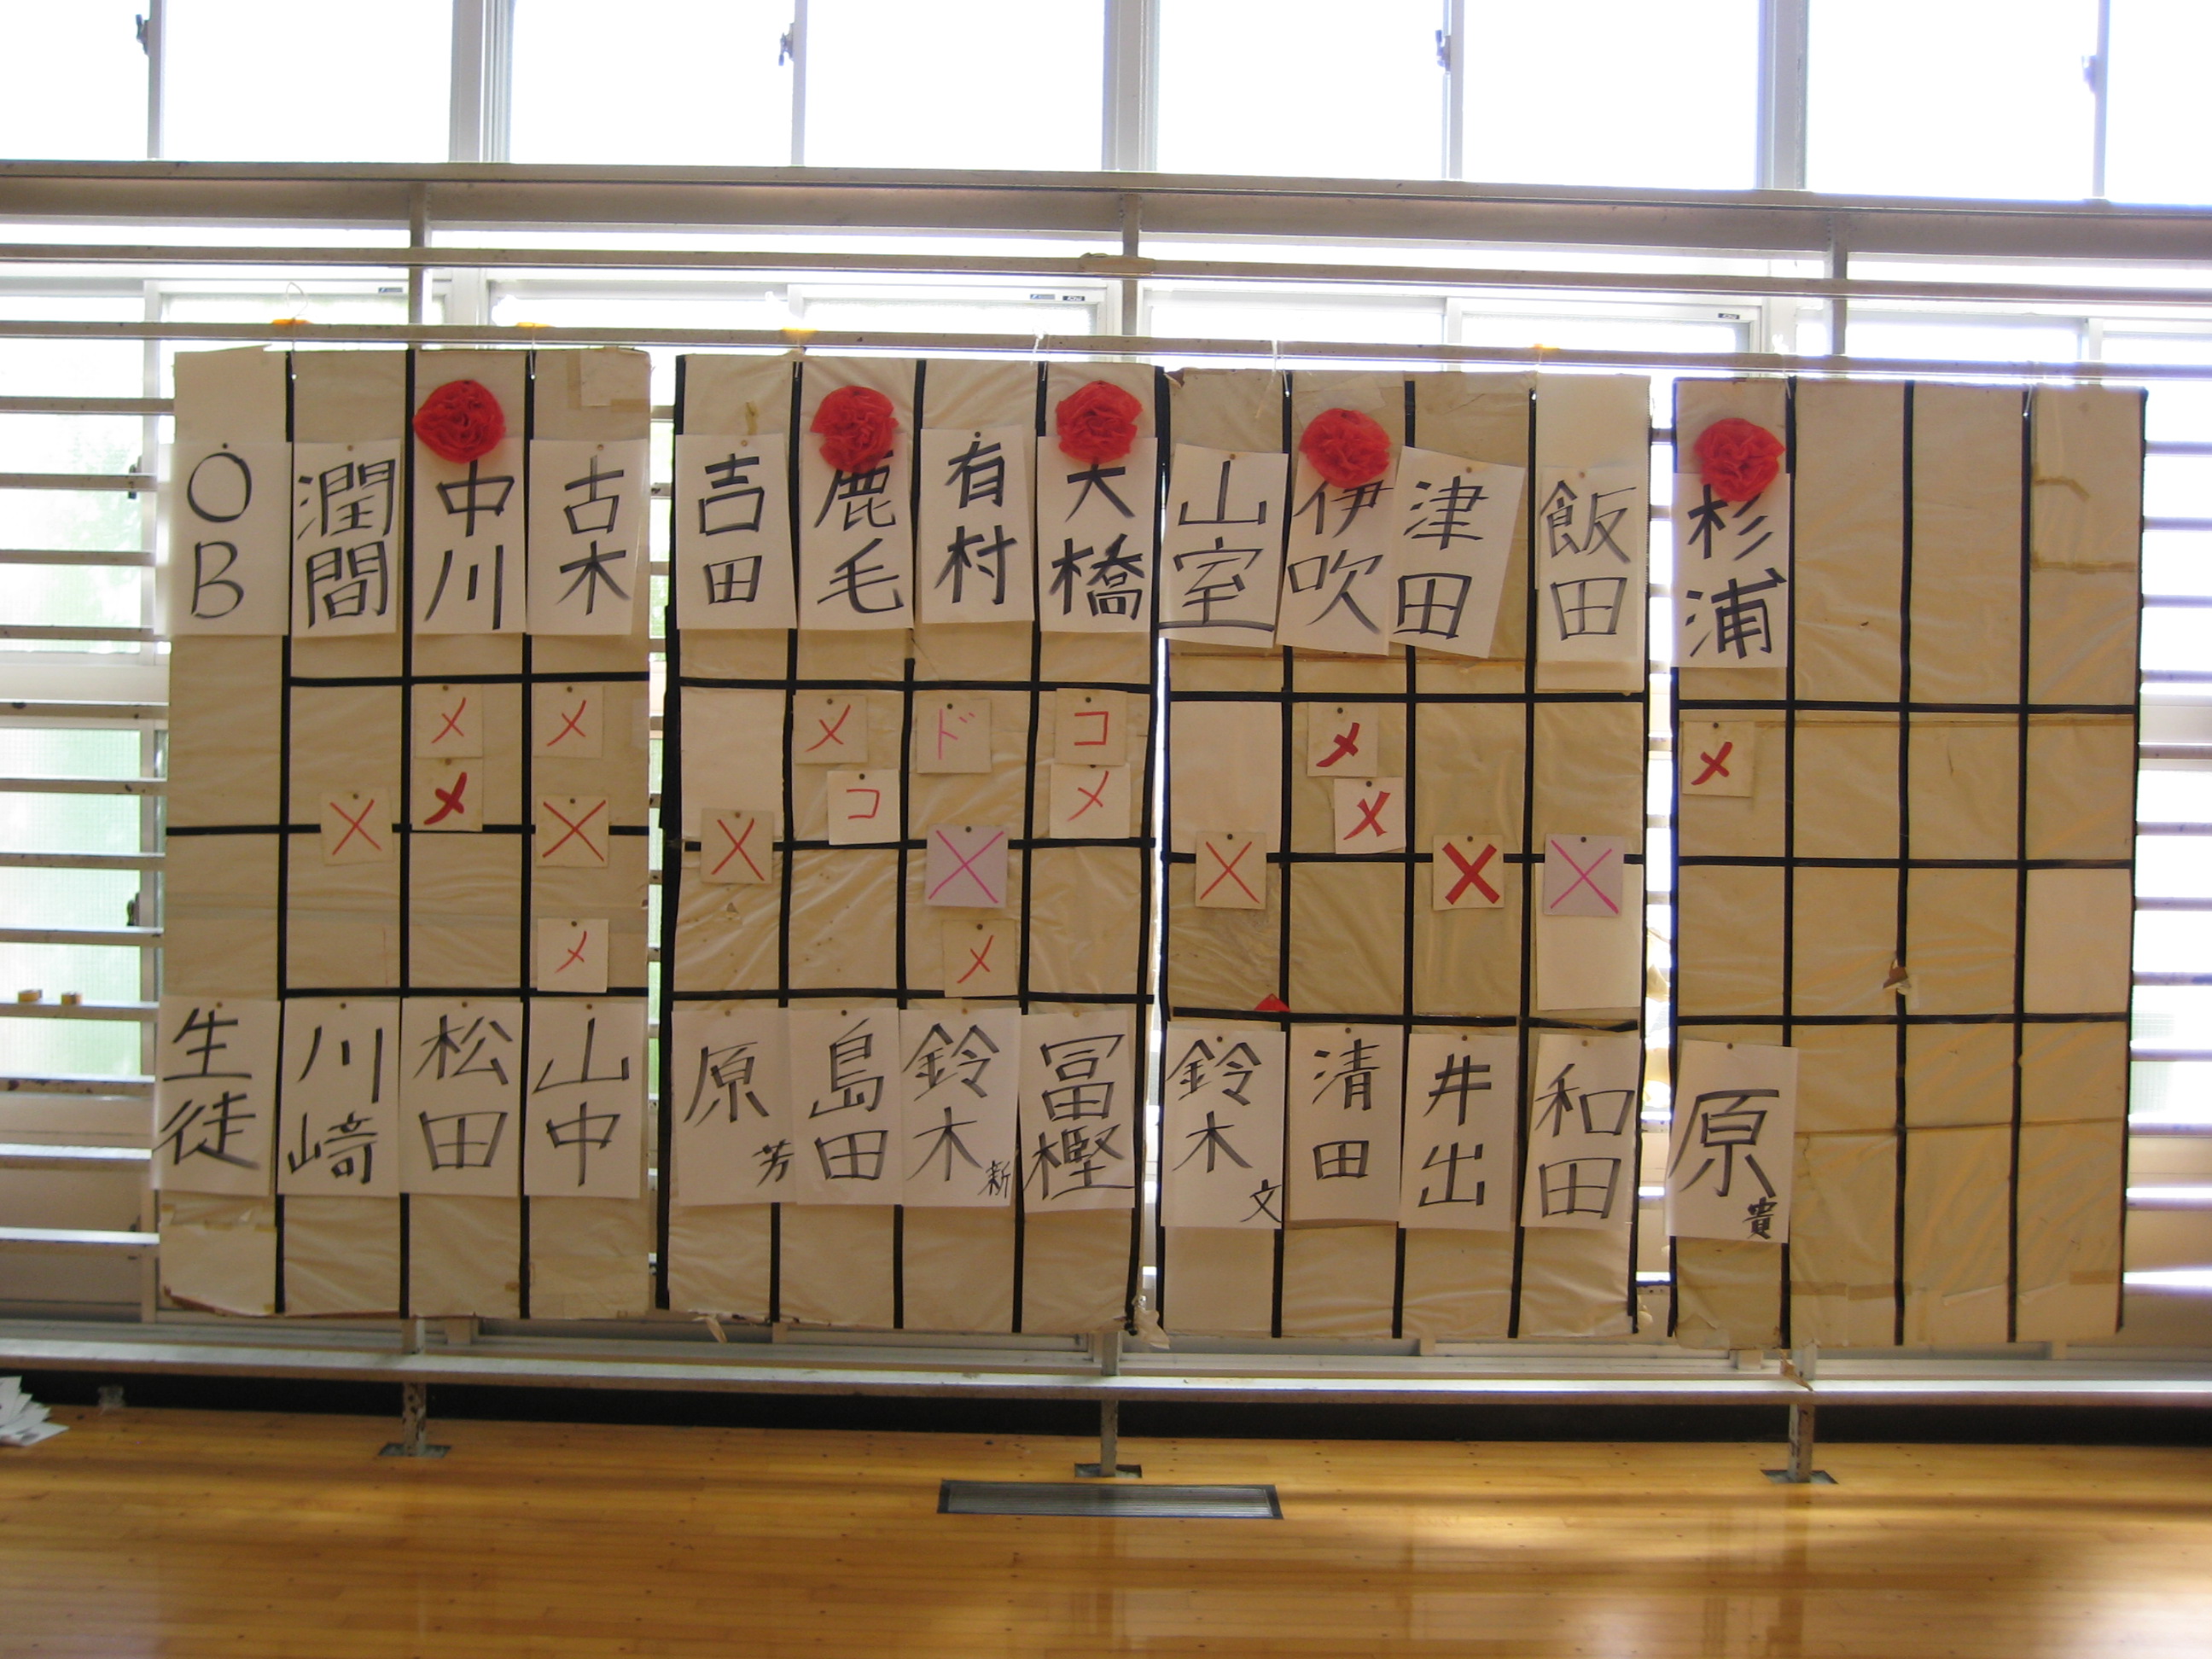 OB
潤間
中川
古木
吉田
鹿毛
有村
大橋
山室
伊吹
津田
飯田
杉浦
メ
メ
メ
コ
ド
コ
メ
メ
メ
メ
メ
×
×
×
×
×
×
×
メ
メ
生徒
川崎
松田
山中
原芳
島田
鈴木新
冨樫
鈴木文
清田
井出
和田
原貴